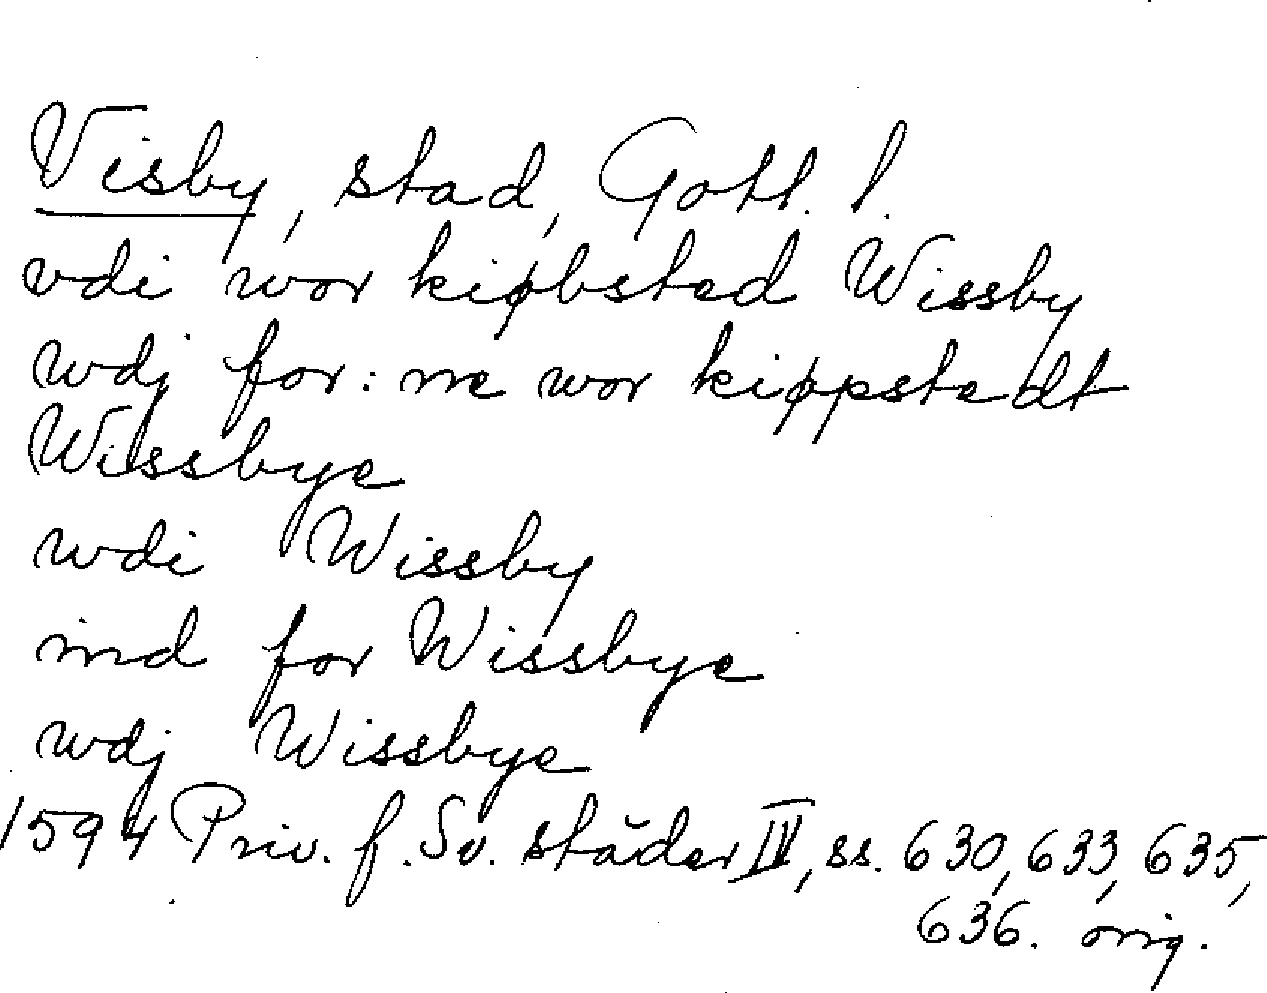 Visby, stad, Gotl. l.
vdi wor kiøbsted Wissby
wdj for: ne wor kiøppstedt
Wissbye
wdi Wissby
ind for Wissbye
wdj Wissbye
1594 Priv. f. Sv. städer IV, ss. 630, 633, 635,
636. orig.